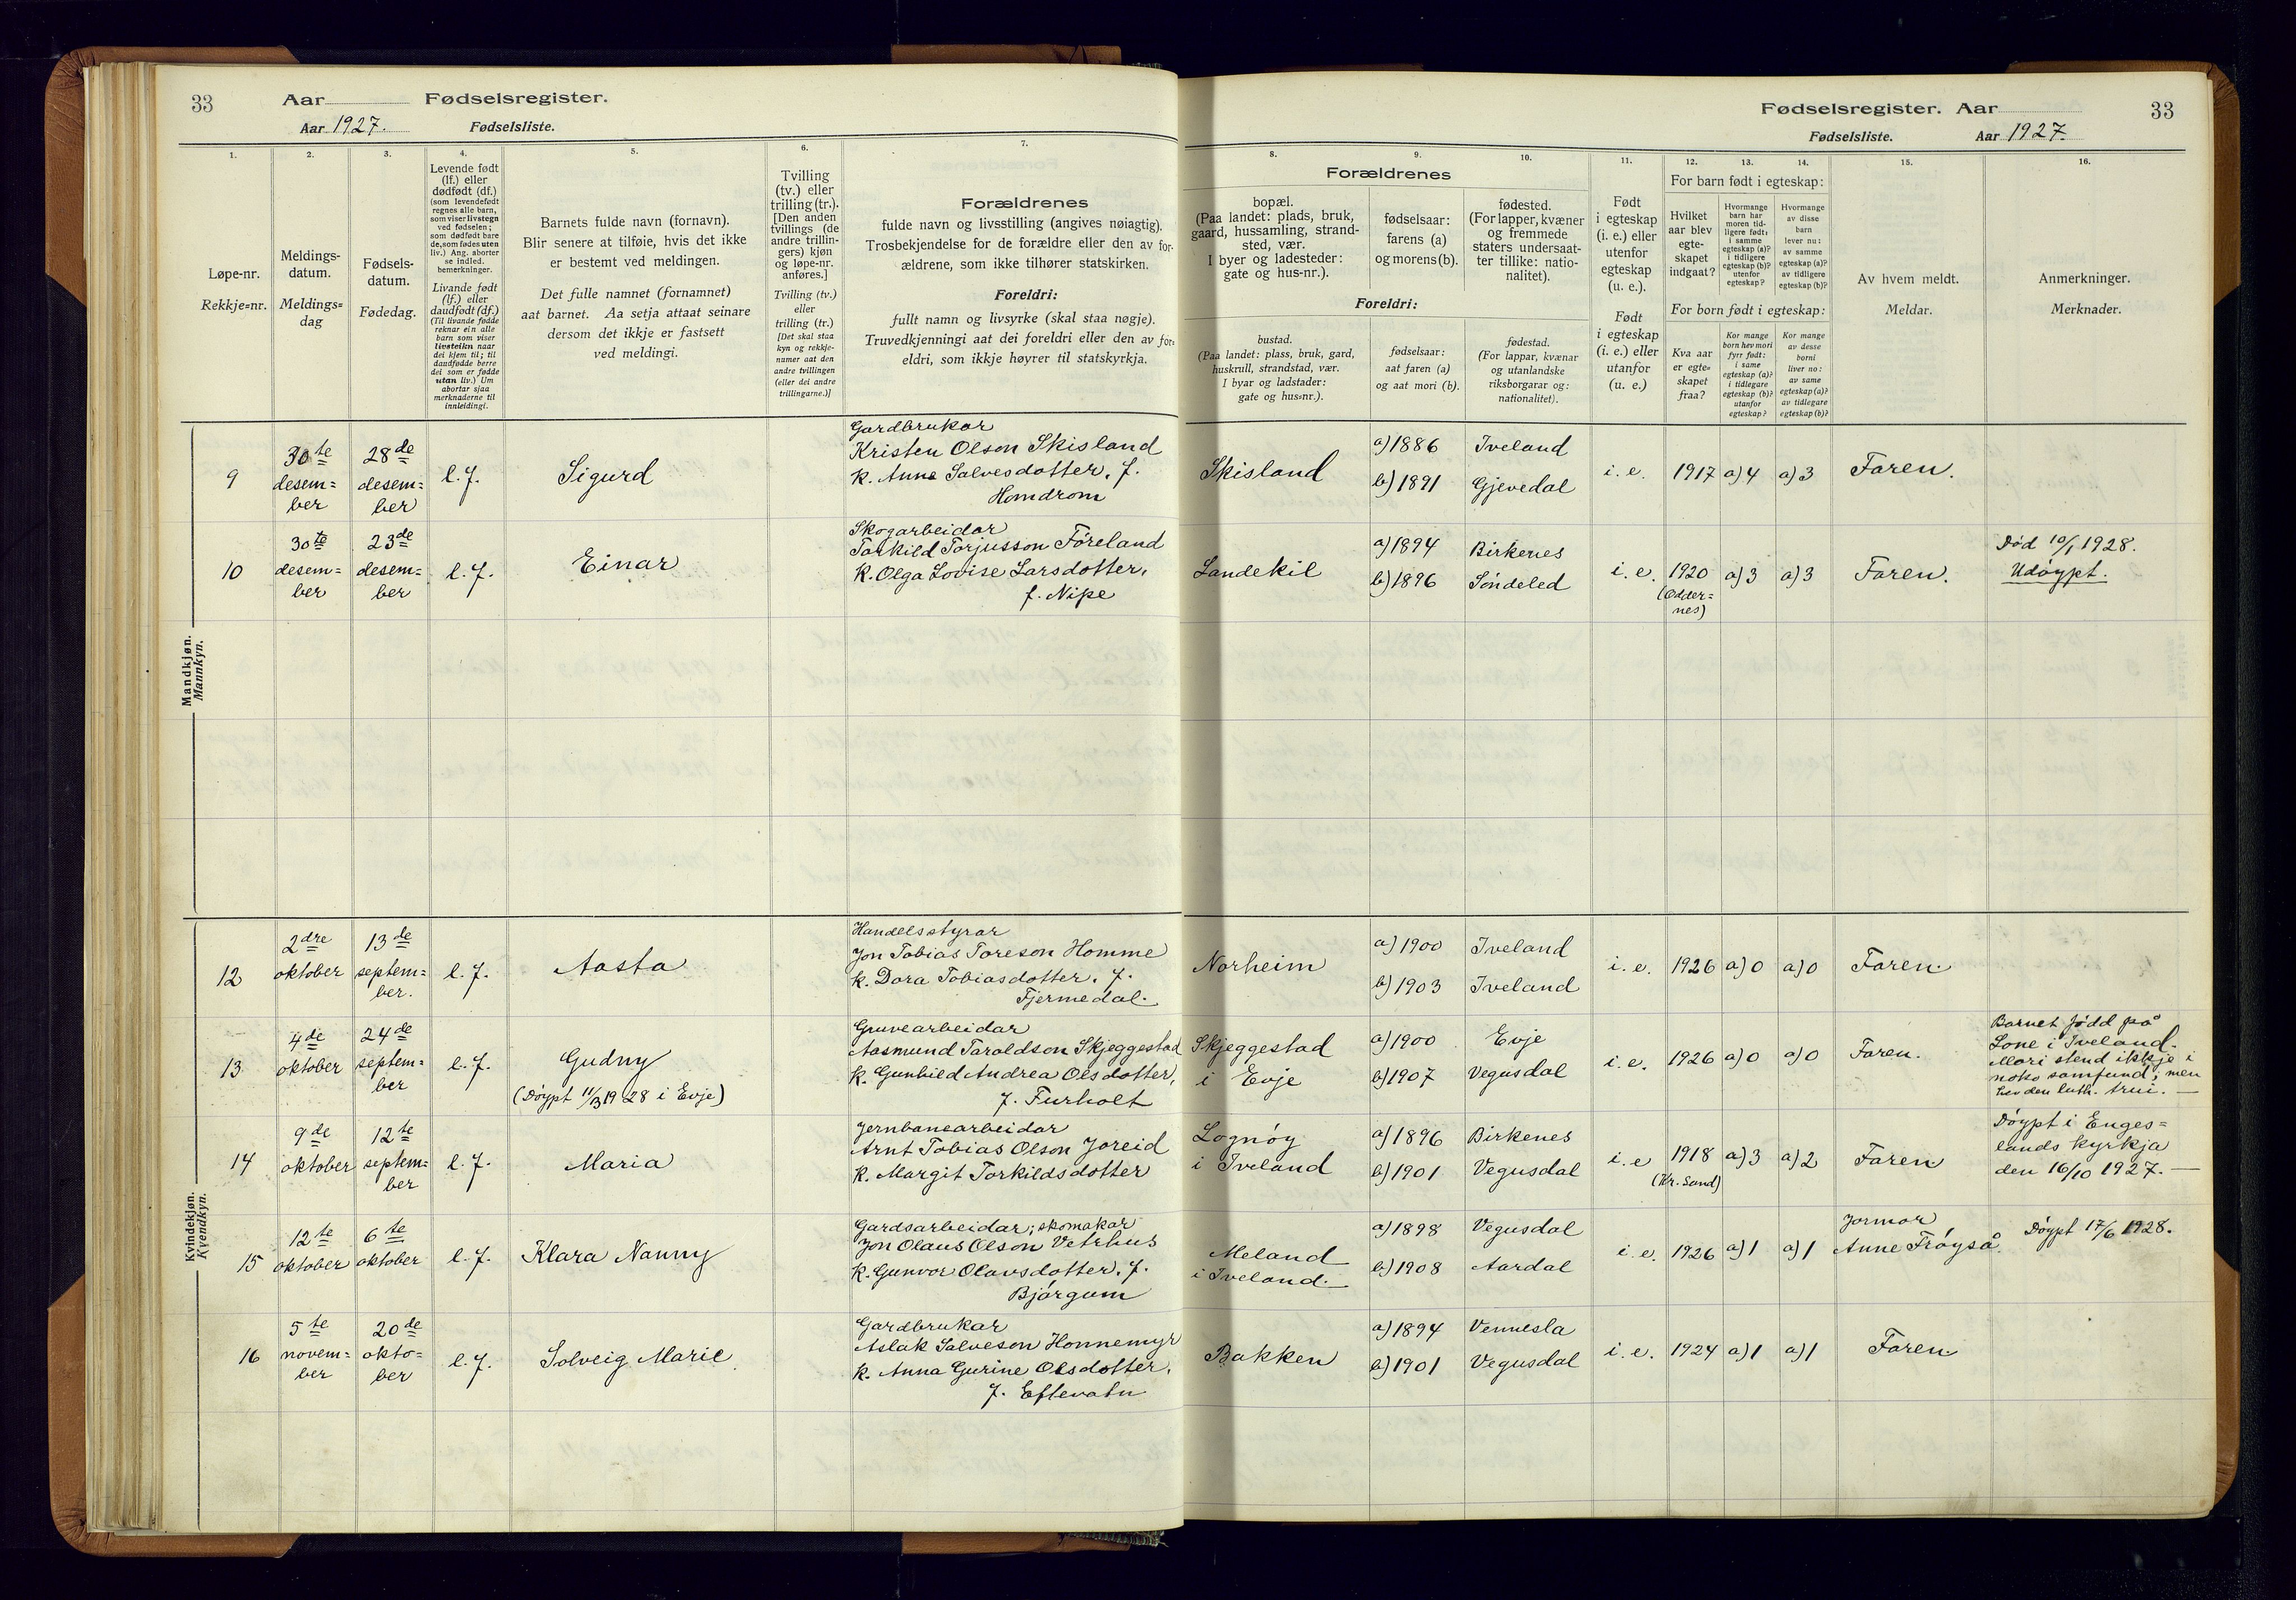 33 Aar Fødselsregister.
Aar 1927. Fødselsliste.
Fødselsregister. Aar 33
Fødselsliste. Aar 1927.
1.
Løpe-nr.
Rekkje=nr.
2.
Meldings-
datum.
Meldings=
dag
3.
Fødsels-
datum.
Fødedag.
4.
Levende født
(lf.) eller
dødfødt (df.)
(som levendefødt
regnes alle barn,
som viser livstegn
ved fødselen;
som dødfødt bare
de, som fødes uten
liv.) Ang. aborter
se indled.
bemerkninger.
Livande født
(lf.) eller
daudfødt (df.)
(Til livande fødde
reknar ein alle
barn som viser
livsteikn naar
dei kjem til; til
daudfødde berre
dei som er fødde
utan liv.) Um
abortar sjaa
merknaderne til
innleidingi.
5.
Barnets fulde navn (fornavn).
Blir senere at tilføie, hvis det ikke
er bestemt ved meldingen.
Det fulle namnet (fornamnet)
aat barnet. Aa setja attaat seinare
dersom det ikkje er fastsett
ved meldingi.
6.
Tvilling
(tv.) eller
trilling (tr.).
[Den anden
tvillings (de
andre trillin-
gers) kjøn
og løpe-nr.
anføres.]
Tvilling (tv.)
eller
trilling (tr.)
[Det skal staa
kyn og rekkje-
numer aat den
andre tvillingen
(eller dei andre
trillingarne.)]
7.
Forældrenes
fulde navn og livsstilling (angives nøiagtig).
Trosbekjendelse for de forældre eller den av for-
ældrene, som ikke tilhører statskirken.
Foreldri:
fullt namn og livsyrke (skal staa nøgje).
Truvedkjenningi aat dei foreldri eller den av for-
eldri, som ikkje høyrer til statskyrkja.
Forældrenes
8.
bopæl.
(Paa landet: plads, bruk,
gaard, hussamling, strand-
sted, vær.
I byer og ladesteder:
gate og hus-nr.).
9.
fødselsaar:
farens (a)
og morens (b).
10.
fødested.
(For lapper, kvæner
og fremmede
staters undersaat-
ter tillike: natio-
nalitet).
Foreldri:
bustad.
(Paa landet: plass, bruk, gard,
huskrull, strandstad, vær.
I byar og ladstader:
gate og hus=nr.).
fødselsaar:
aat faren (a)
og aat mori (b).
fødestad.
(For lappar, kvænar
og utanlandske
riksborgarar og:
nationalitet).
11.
Født
i egteskap
(i. e.) eller
utenfor
egteskap
(u. e.).
Født
i egteskap
(i. e.) eller
utanfor
(u. e.)
For barn født i egteskap:
12.
Hvilket
aar blev
egte-
skapet
indgaat?
13.
Hvormange
barn har
moren tid-
ligere født:
i samme
egteskap (a)?
i tidligere
egteskap (b)?
utenfor
egteskap?
14.
Hvormange
av disse
barn
lever nu:
av samme
egteskap (a)?
av tidligere
egteskap (b)?
For born født i egteskap:
Kva aar
er egte=
skapet
fraa?
Kor mange
born hev mori
fyrr født:
i same
egteskap (a)?
i tidlegare
egteskap (b)?
utanfor
egteskap?
Kor mange
av desse
borni
liver no:
av same
egteskap (a)?
av tidlegare
egteskap (b)?
15.
Av hvem meldt.
Meldar.
16.
Anmerkninger.
Merknader.
Mandkjøn.
Mannkyn.
9
30te
desem=
ber
28de
desem=
ber
l.f.
Sigurd
Gardbrukar
Kristen Olson Skisland
k. Anne Salvesdotter, f.
Homdrom
Skisland
a) 1886
b) 1891
Iveland
Gjevedal
i. e.
1917
a) 4
a) 3
Faren.
10
30te
desem=
ber
23de
desem=
ber
l.f.
Einar
Skogarbeidar
Torkild Torjusson Föreland
k. Olga Lovise Larsdotter,
f. Nipe
Landekil
a) 1894
b) 1896
Birkenes
Söndeled
i. e.
1920
(Odder=
nes)
a) 3
a) 3
Faren.
Död 10/1 1928.
Udöypt.
Kvindekjøn.
Kvendkyn.
12
2dre
oktober
13de
septem=
ber.
l.f.
Aasta
Handelsstyrar
Jon Tobias Toreson Homme
k. Dora Tobiasdotter, f.
Fjermedal.
Norheim
a) 1900
b) 1903
Iveland
Iveland
i. e.
1926
a) 0
a) 0
Faren.
13
4de
oktober
24de
septem=
ber
l.f.
Gudny
(Döypt 11/3 1928 i Evje)
Gruvearbeidar
Aasmund Taraldson Skjeggestad
k. Gunhild Andrea Olsdotter,
f. Furholt
Skjeggestad
i Evje
a) 1900
b) 1907
Evje
Vegusdal
i. e.
1926
a) 0
a) 0
Faren.
Barnet född på
Lone i Iveland.
Mori stend ikkje i
noko samfund, men
hev den luth. trui. —
14
9de
oktober
12te
septem=
ber
l.f.
Maria
Jernbanearbeidar
Arnt Tobias Olson Joreid
k. Margit Torkildsdotter
Lognöy
i Iveland
a) 1896
b) 1901
Birkenes
Vegusdal
i. e
1918
(Kr. Sand)
a) 3
a) 2
Faren
Döypt i Enges=
lands kyrkja
den 16/10 1927. —
15
12te
oktober
6te
oktober
l.f.
Klara Nanny
Gardsarbeidar; skomakar
Jon Olaus Olson Vetrhus
k. Gunvor Olavsdotter, f.
Björgum
Meland
i Iveland.
a) 1898
b) 1908
Vegusdal
Aardal
i. e.
1926
a) 1
a) 1
Jormor
Anne Fröyså.
Döypt 17/6 1928.
16
5te
novem=
ber
20de
okto=
ber
l.f.
Solveig Marie
Gardbrukar
Aslak Salveson Honnemyr
k. Anna Gurine Olsdotter,
f. Eftevatn
Bakken
a) 1894
b) 1901
Vennesla
Vegusdal
i. e.
1924
a) 1
a) 1
Faren.